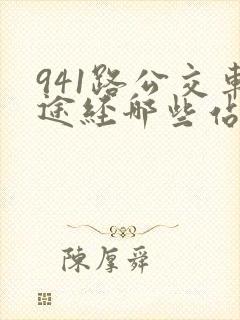 941路公交車
途经哪些佔
陳厚舜